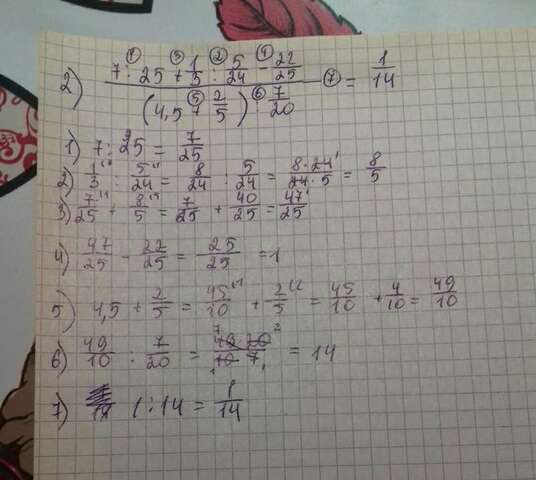 2) (7 : 25 + 1/3 : 5/24 - 22/25) / ((4,5 + 2/5) : 7/20) = 1/14
1) 7 : 25 = 7/25
2) 1/3 : 5/24 = 8/24 : 5/24 = 8·24/24·5 = 8/5
3) 7/25 + 8/5 = 7/25 + 40/25 = 47/25
4) 47/25 - 22/25 = 25/25 = 1
5) 4,5 + 2/5 = 45/10 + 2/5 = 45/10 + 4/10 = 49/10
6) 49/10 : 7/20 = 49·20/10·7 = 14
7) 1 : 14 = 1/14